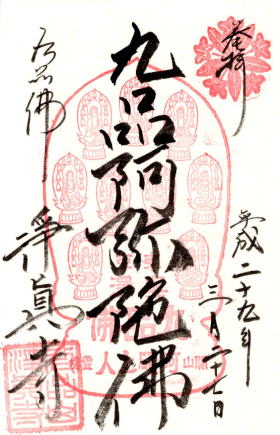 奉拝
平成二十九年
三月二十七日
九品阿弥陀佛
九品佛
浄真寺